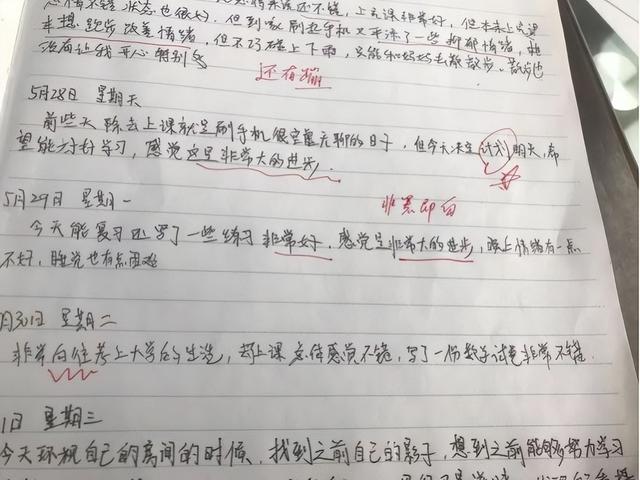 心情不错 状态也很好，
还不错，上完课非常好，但本来上完课
半想跑步改善情绪，但到家刷起手机又开添了一些抑郁情绪，想
但不巧碰上下雨，只能和妈妈去散散步，散步也
没有让我开心特别多
还有瑞
5月28日 星期天
前些天 除去上课就是刷手机很空虚无聊的日子，但今天决定计划明天，希
望能好好学习，感觉这是非常大的进步。
5月29日 星期一
非黑即白
今天能复习还写了一些练习非常好，感觉是非常大的进步，晚上情绪有一点
不好，睡觉也有点困难
月30日 星期二
非常向往考上大学的生活，去上课总体感觉不错，写了一份数学试卷非常不错.
1日 星期三
今天环视自己的房间的时候，找到之前自己的影子，想到之前能够努力学习